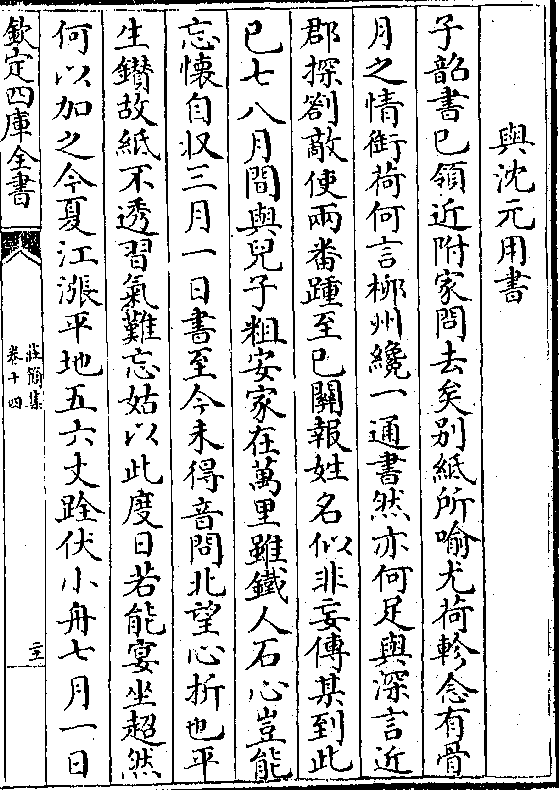 與沈元用書
子韶書已領近附家問去矣别紙所喻尤荷軫念有骨
月之情銜荷何言栁州纔一通書然亦何足與深言近
郡探劄敵使兩番踵至已關報姓名似非妄傳某到此
已七八月間與兒子粗安家在萬里雖鐵人石心豈能
忘懷自収三月一日書至今未得音問北望心折也平
生鑚故紙不透習氣難忘姑以此度日若能宴坐超然
何以加之今夏江漲平地五六丈跧伏小舟七月一日
欽定四庫全書
莊簡集
卷十四